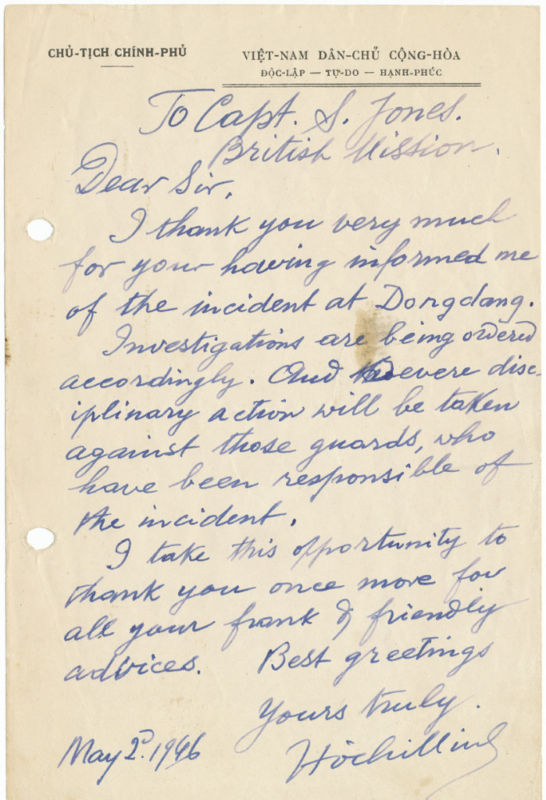 CHỦ-TỊCH CHÍNH-PHỦ
VIỆT-NAM DÂN-CHỦ CỘNG-HÒA
ĐỘC-LẬP — TỰ-DO — HẠNH-PHÚC
To Capt. S. Jones.
British Mission.
Dear Sir,
I thank you very much
for your having informed me
of the incident at Dongdang.
Investigations are being ordered
accordingly. And severe disc-
iplinary action will be taken
against those guards, who
have been responsible of
the incident.
I take this opportunity to
thank you once more for
all your frank & friendly
advices. Best greetings
Yours truly.
May 2d. 1946 Hồchíminh